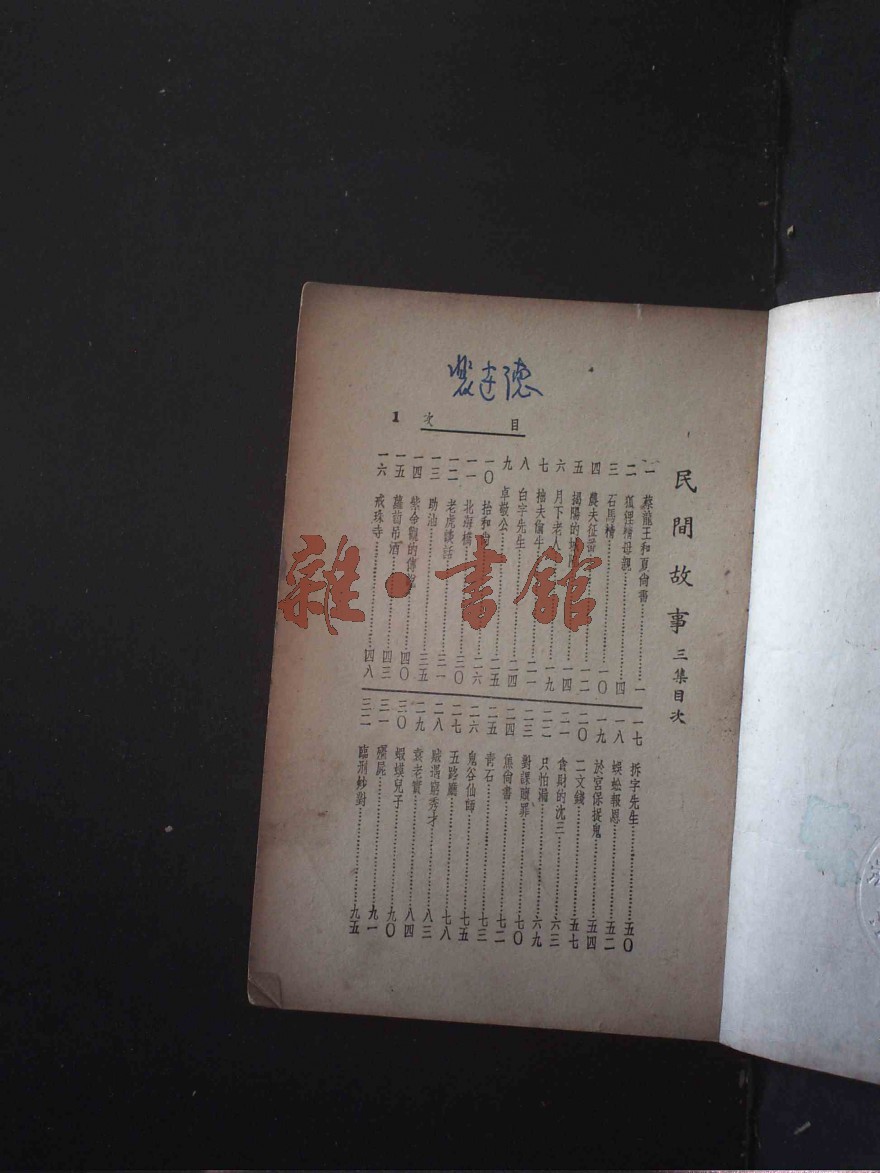 民間故事 三集目次
目次
1
一 蔡龍王和夏尙書 一
二 狐狸精母親 四
三 石馬精 一〇
四 農夫征番 一二
五 揭陽的 一四
六 月下老人 一九
七 二一
八 白字先生 二四
九 卓敬公 二五
一〇 拾和 二六
一一 北海 三〇
一二 老虎談話 三一
一三 助油 三五
一四 紫金觀的傳說 四〇
一五 蘿蔔吊酒 四三
一六 戒珠寺 四八
一七 拆字先生 五〇
一八 蜈蚣報恩 五二
一九 於宮保捉鬼 五四
二〇 二文錢 五七
二一 貪財的沈三 六三
二二 只怕漏 六九
二三 對課贖罪 七〇
二四 焦尙書 七二
二五 靑石 七三
二六 鬼谷仙師 七五
二七 五路廳 七八
二八 賊遇窮秀才 八三
二九 袁老實 八四
三〇 蝦蟆兒子 九〇
三一 殭屍 九一
三二 臨刑妙對 九五
雜·書館